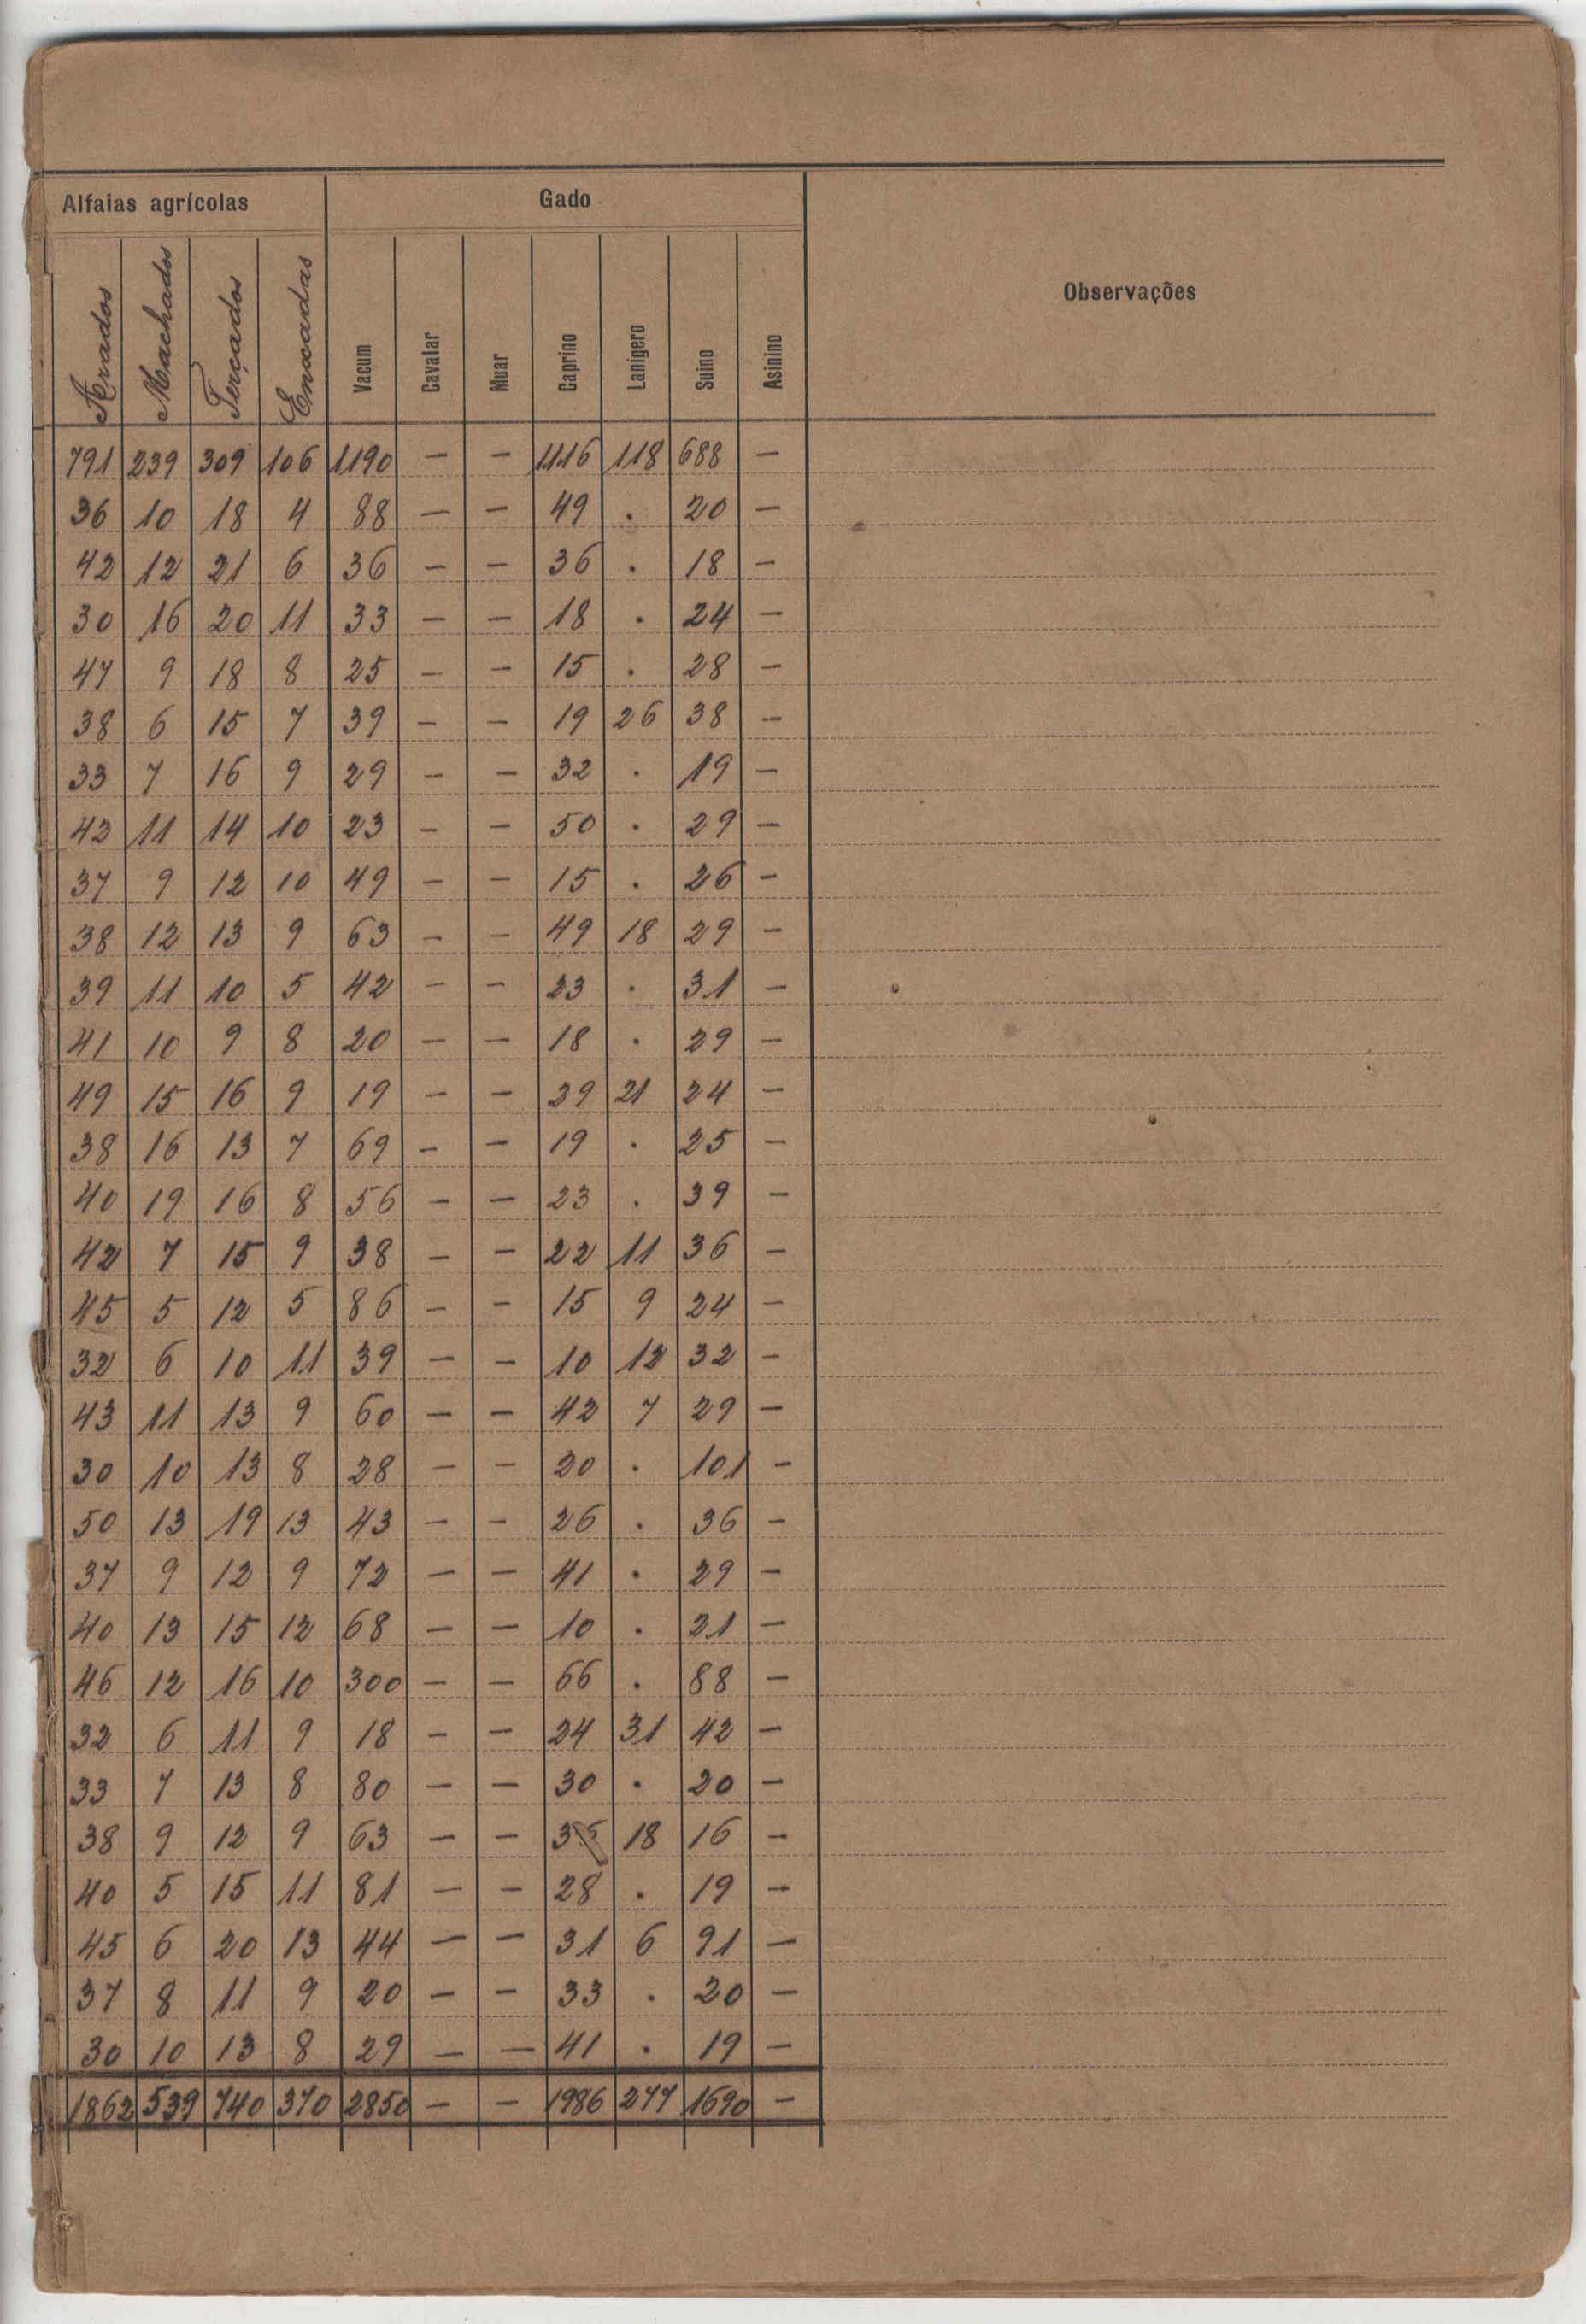 Alfaias agrícolas Gado Observações
Arados Machados Terçados Enxadas Vacum Cavalar Muar Caprino Lanígero Suino Asinino
791 239 309 106 1190 — — 1116 118 688 —
36 10 18 4 88 — — 49 . 20 —
42 12 21 6 36 — — 36 . 18 —
30 16 20 11 33 — — 18 . 24 —
47 9 18 8 25 — — 15 . 28 —
38 6 15 7 39 — — 19 26 38 —
33 7 16 9 29 — — 32 . 19 —
42 11 14 10 23 — — 50 . 29 —
37 9 12 10 49 — — 15 . 26 —
38 12 13 9 63 — — 49 18 29 —
39 11 10 5 42 — — 23 . 31 —
41 10 9 8 20 — — 18 . 29 —
49 15 16 9 19 — — 29 21 24 —
38 16 13 7 69 — — 19 . 25 —
40 19 16 8 56 — — 23 . 39 —
42 7 15 9 38 — — 22 11 36 —
45 5 12 5 86 — — 15 9 24 —
32 6 10 11 39 — — 10 12 32 —
43 11 13 9 60 — — 42 7 29 —
30 10 13 8 28 — — 20 . 101 —
50 13 19 13 43 — — 26 . 36 —
37 9 12 9 72 — — 41 . 29 —
40 13 15 12 68 — — 10 . 21 —
46 12 16 10 300 — — 66 . 88 —
32 6 11 9 18 — — 24 31 42 —
33 7 13 8 80 — — 30 . 20 —
38 9 12 9 63 — — 18 16 —
40 5 15 11 81 — — 28 . 19 —
45 6 20 13 44 — — 31 6 91 —
37 8 11 9 20 — — 33 . 20 —
30 10 13 8 29 — — 41 . 19 —
1862 539 740 370 2850 — — 1986 277 1690 —